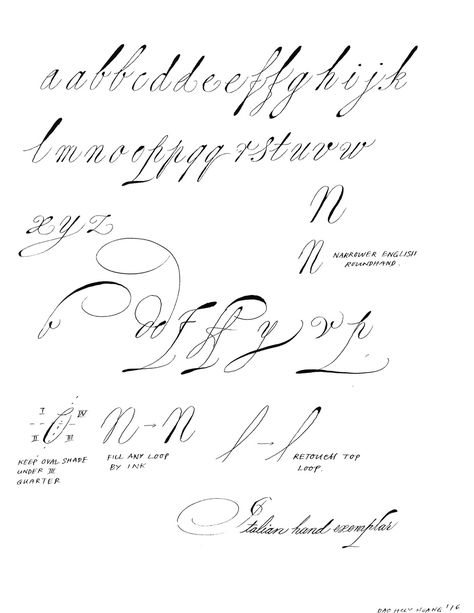 a a b b c d d e e f f g h i j k
l m n o o p p q q r s t u v w
x y z
N
N NARROWER ENGLISH
ROUNDHAND.
I IV
II III
KEEP OVAL SHADE
UNDER III
QUARTER
N → N
FILL ANY LOOP
BY INK
l → l
RETOUCH TOP
LOOP.
Italian hand exemplar
DAO HUY HOANG '16